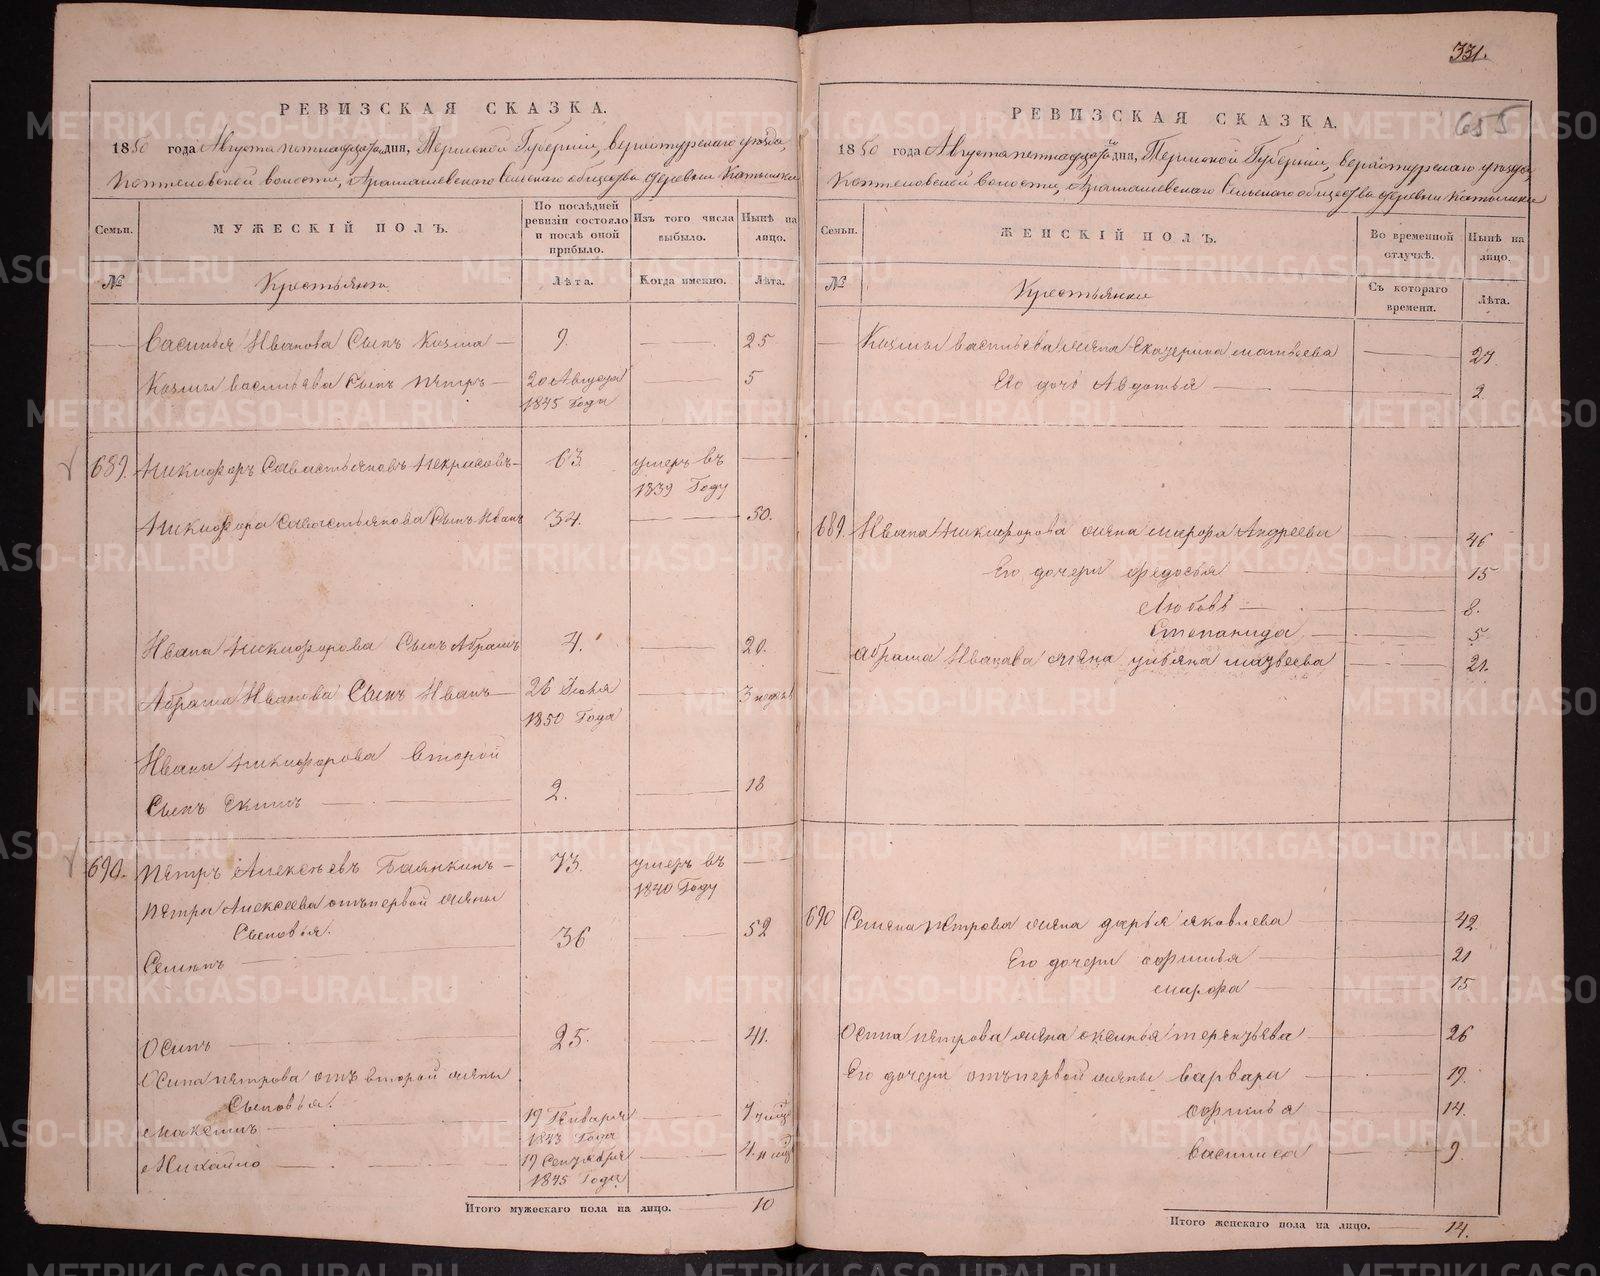 331.
655
РЕВИЗСКАЯ СКАЗКА.
1850 года Августа пятнадцатаго дня, Пермской Губерніи, Верхотурскаго уѣзда,
волости, Арамашевскаго Сельскаго общества деревни Катышки
Семьи.
МУЖЕСКІЙ ПОЛЪ.
По послѣдней ревизіи состояло и послѣ оной прибыло.
Изъ того числа выбыло.
Нынѣ на лицо.
№
Крестьяне.
Лѣта.
Когда именно.
Лѣта.
Василья Иванова Сынъ Козма 9. 25
Козмы Васильева Сынъ Петръ 20 Августа 5
1845 Года
689. Никифоръ Савастьяновъ Некрасовъ 63 умеръ въ
1839 Году
Никифора Савастьянова Сынъ Иванъ 34. 50.
Ивана Никифорова Сынъ Абрамъ 4. 20.
Абрама Иванова Сынъ Иванъ 26 Іюля 3 недѣл
1850 Года
Ивана Никифорова второй
Сынъ Екимъ 2. 18
690. Петръ Алексѣевъ 73. умеръ въ
1840 Году
Петра Алексѣева отъ первой жены
Сыновья.
Семенъ 36 52
Осипъ 25. 41.
Осипа Петрова отъ второй жены
Сыновья.
Максимъ 19 Генваря 7
1843 Года
Михайло 19 Сентября 4.
1845 Года
Итого мужескаго пола на лицо. 10
РЕВИЗСКАЯ СКАЗКА.
1850 года Августа пятнадцатаго дня, Пермской Губерніи, Верхотурскаго уѣзда,
волости, Арамашевскаго Сельскаго общества деревни Катышки
Семьи.
ЖЕНСКІЙ ПОЛЪ.
Во временной отлучкѣ.
Нынѣ на лицо.
№
Крестьянки
Съ котораго времени.
Лѣта.
Козмы Васильева жена Екатерина Матвѣева 27
Его дочь Авдотья 2.
689. Ивана Никифорова жена Марфа Андреева 46
Его дочери Федосья 15
Любовь 8.
Степанида 5
Абрама Иванова жена Ульяна Матвеева 21.
690 Семена Петрова жена Дарья Яковлева 42
Его дочери Софинья 21
Марфа 15
Осипа Петрова жена Оксинья Терентьева 26
Его дочери отъ первой жены Варвара 19.
Софинья 14.
Василиса 9
Итого женскаго пола на лицо. 14.
METRIKI.GASO-URAL.RU